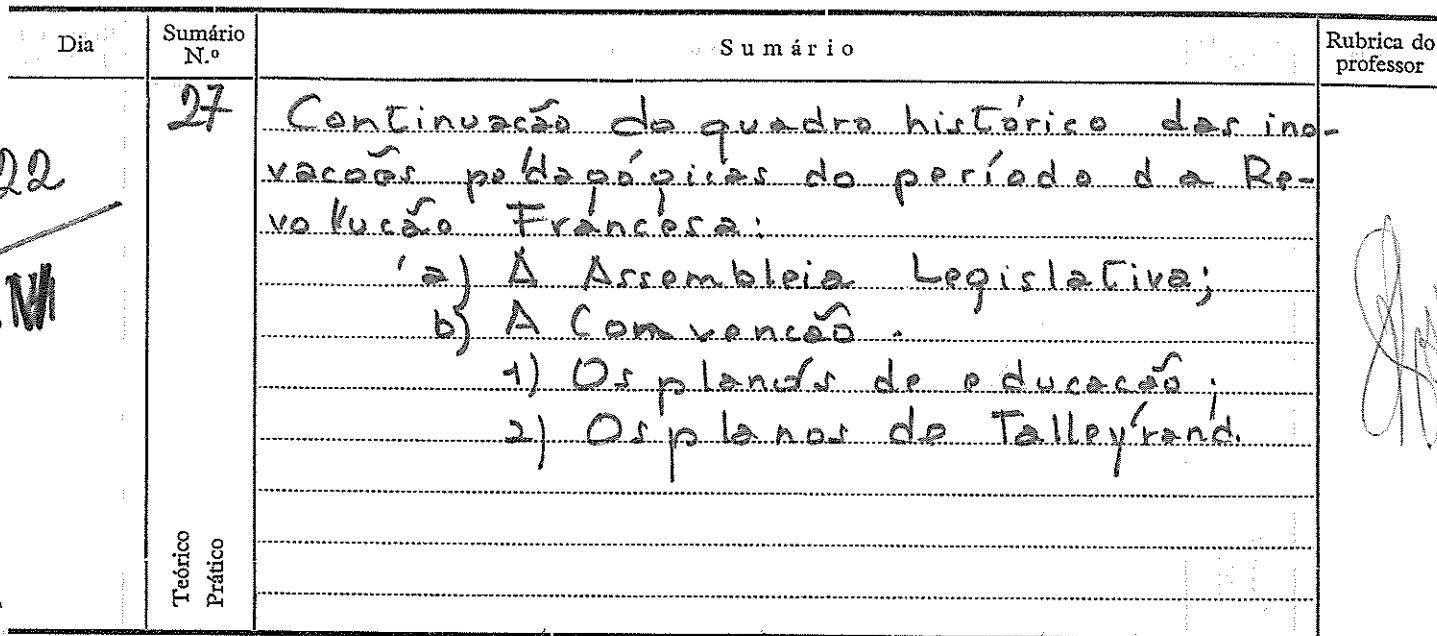 Dia Sumário N.º Sumário Rubrica do professor
22
27
Continuação do quadro histórico das ino-
vações pedagógicas do período da Re-
volução Francesa:
a) A Assembleia Legislativa;
b) A Convenção.
1) Os planos de educação;
2) Os planos de Talleyrand.
Teórico
Prático